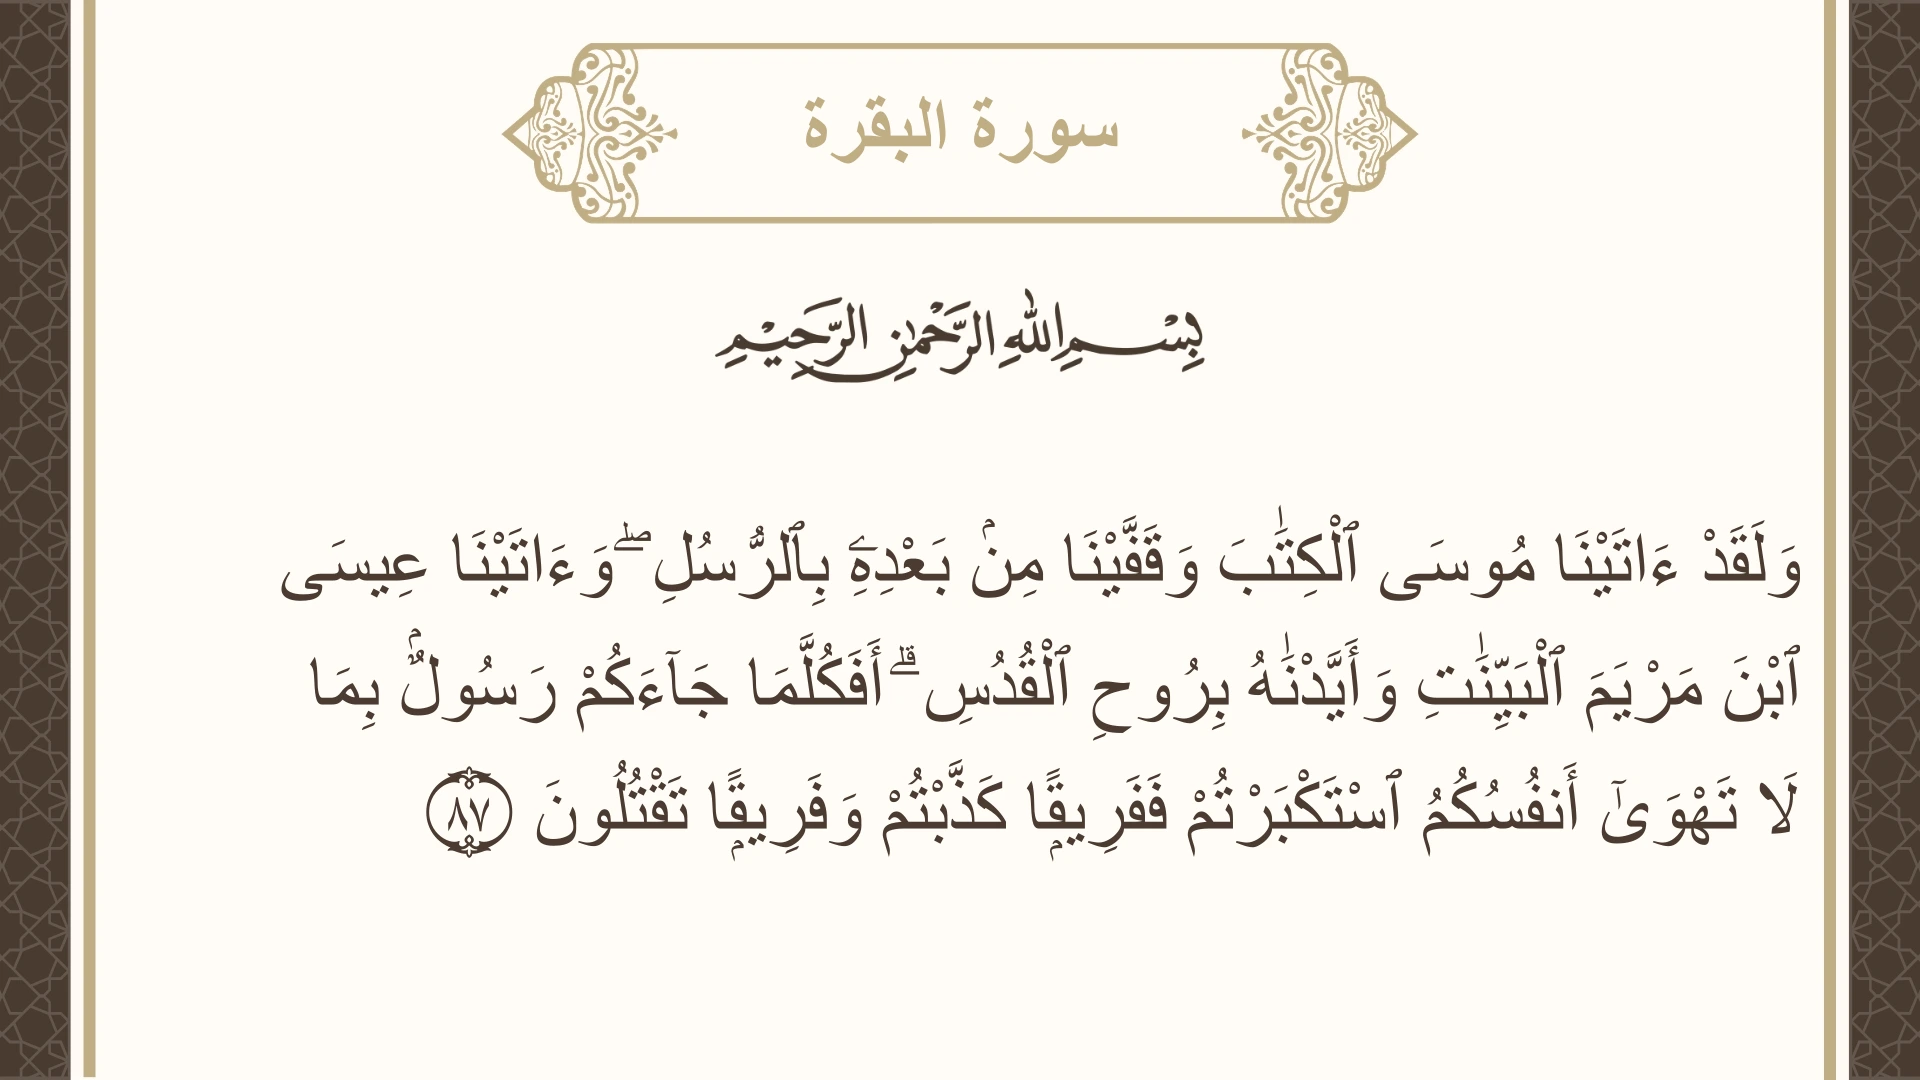 سورة البقرة
بِسْمِ اللهِ الرَّحْمٰنِ الرَّحِيْمِ
وَلَقَدْ ءَاتَيْنَا مُوسَى ٱلْكِتَٰبَ وَقَفَّيْنَا مِنۢ بَعْدِهِۦٓ بِٱلرُّسُلِ ۖ وَءَاتَيْنَا عِيسَى
ٱبْنَ مَرْيَمَ ٱلْبَيِّنَٰتِ وَأَيَّدْنَٰهُ بِرُوحِ ٱلْقُدُسِ ۗ أَفَكُلَّمَا جَآءَكُمْ رَسُولٌۢ بِمَا
لَا تَهْوَىٰٓ أَنفُسُكُمُ ٱسْتَكْبَرْتُمْ فَفَرِيقًۭا كَذَّبْتُمْ وَفَرِيقًۭا تَقْتُلُونَ ٨٧